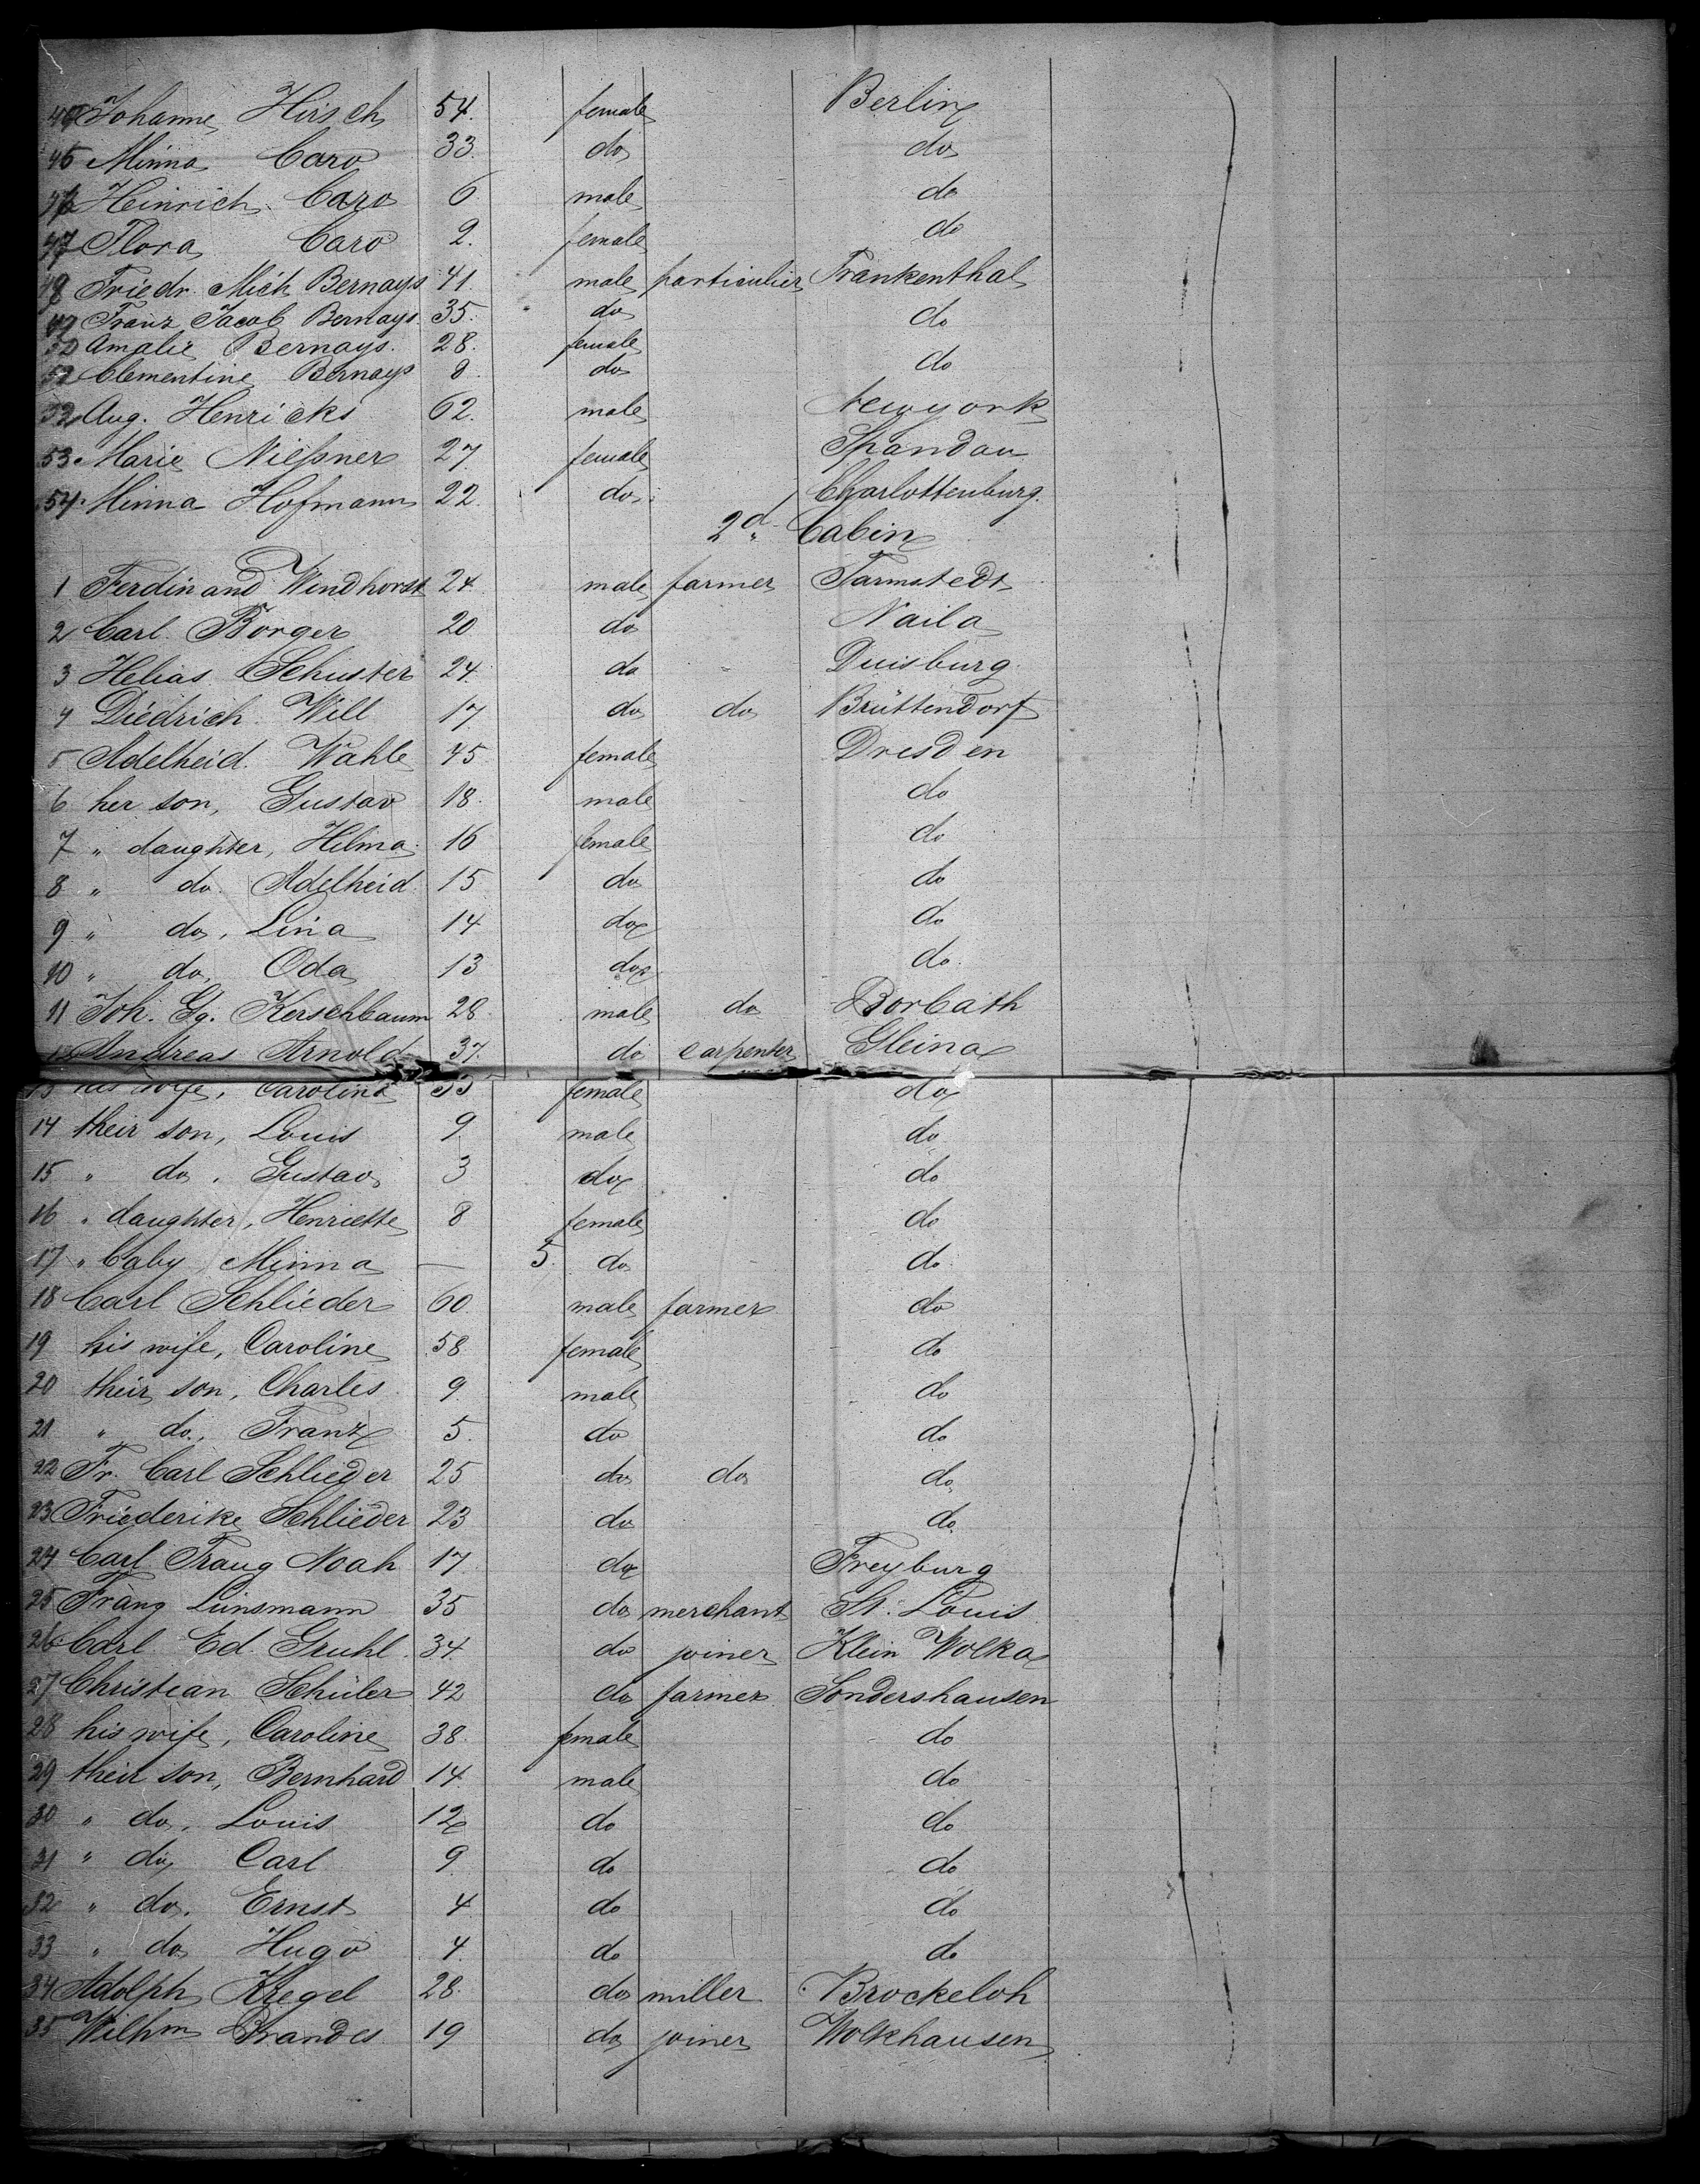 Johanne Hirsch 54. female Berlin
45 Minna Caro 33. do do
46 Heinrich Caro 6 male do
47 Flora Caro 2. female do
48 Friedr. Mich. Bernays 41. male particulier Frankenthal
49 Franz Jacob Bernays 35. do do
50 Amalie Bernays. 28. female
51 Clementine Bernays 8. do do
52 Aug. Henricks 62. male Newyork
53. Marie Nießner 27. female Spandau
54. Minna Hofmann 22. do. Charlottenburg.
2d. Cabin
1 Ferdinand Windhorst 24 male farmer Tarmstedt
2 Carl Borger 20 do Naila
3 Helias Schuster 24. do Duisburg.
4 Diedrich Will 17. do do Brüttendorf
5 Adelheid Wahle 45 female Dresden
6 her son, Gustav 18. male do
7 " daughter, Hilma 16 female do
8 " do Adelheid 15 do do
9 " do, Lina 14 do do
10 " do, Oda 13 do do
11 Joh. Gg. Kerschbaum 28. male do Borbath
12 Andreas Arnold 37. do carpenter Gleina
13 his wife, Caroline 35 female do
14 their son, Louis 9. male do
15 " do. Gustav 3 do do
16 " daughter, Henriette 8 female do
17 " baby Minna — 5. do do
18 Carl Schlieder 60. male farmer do
19 his wife, Caroline 58. female do
20 their son, Charles 9. male do
21 " do., Franz 5. do do
22 Fr. Carl Schlieder 25 do do do
23 Friederike Schlieder 23 do do
24 Carl Traug Noah 17. do Freyburg
25 Franz Linsmann 35 do merchant St. Louis
26 Carl Ed. Gruhl. 34. do joiner Klein Wolka
27 Christian Schüler 42 do farmer Sondershausen
28 his wife, Caroline 38. female do
29 their son, Bernhard 14. male do
30 " do, Louis 12 do do
31 " do, Carl 9. do do
32 " do. Ernst 4. do do
33 " do Hugo 4. do do
34 Adolph Kregel 28. do miller Brockeloh
35 Wilhm Brandes 19 do joiner Wolkhausen